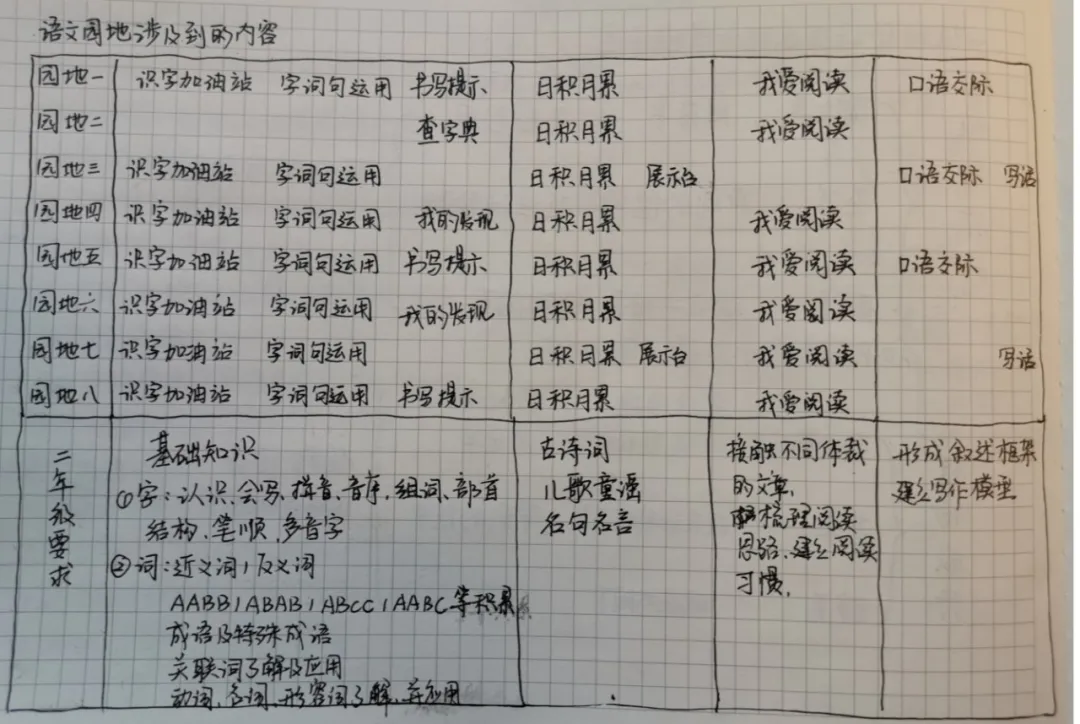 语文园地涉及到的内容
园地一 识字加油站 字词句运用 书写提示 日积月累 我爱阅读 口语交际
园地二 查字典 日积月累 我爱阅读
园地三 识字加油站 字词句运用 日积月累 展示台 口语交际 写话
园地四 识字加油站 字词句运用 我的发现 日积月累 我爱阅读
园地五 识字加油站 字词句运用 书写提示 日积月累 我爱阅读 口语交际
园地六 识字加油站 字词句运用 我的发现 日积月累 我爱阅读
园地七 识字加油站 字词句运用 日积月累 展示台 我爱阅读 写话
园地八 识字加油站 字词句运用 书写提示 日积月累 我爱阅读
二年级要求
基础知识
①字:认识、会写、拼音、音序、组词、部首
结构、笔顺、多音字
②词:近义词,反义词
AABB,ABAB,ABCC,AABC等积累
成语及特殊成语
关联词了解及应用
动词、名词、形容词了解、并应用
古诗词
儿歌童谣
名句名言
接触不同体裁
的文章,
梳理阅读
思路、建立阅读
习惯,
形成叙述框架
建立写作模型